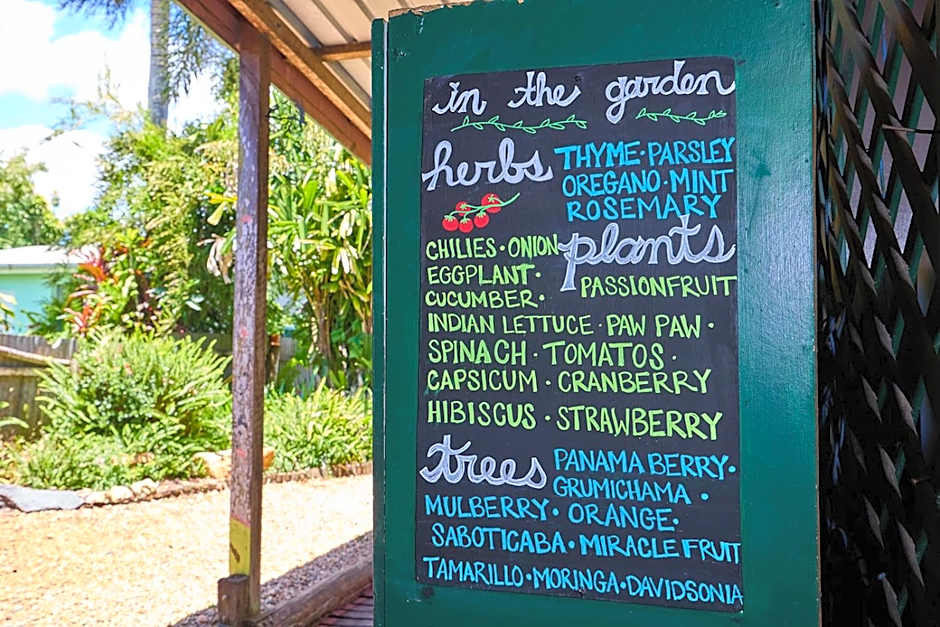 in the garden
herbs THYME · PARSLEY
OREGANO · MINT
ROSEMARY
plants
CHILIES · ONION
EGGPLANT ·
CUCUMBER · PASSIONFRUIT
INDIAN LETTUCE · PAW PAW ·
SPINACH · TOMATOS ·
CAPSICUM · CRANBERRY
HIBISCUS · STRAWBERRY
trees PANAMA BERRY ·
GRUMICHAMA ·
MULBERRY · ORANGE ·
SABOTICABA · MIRACLE FRUIT
TAMARILLO · MORINGA · DAVIDSONIA